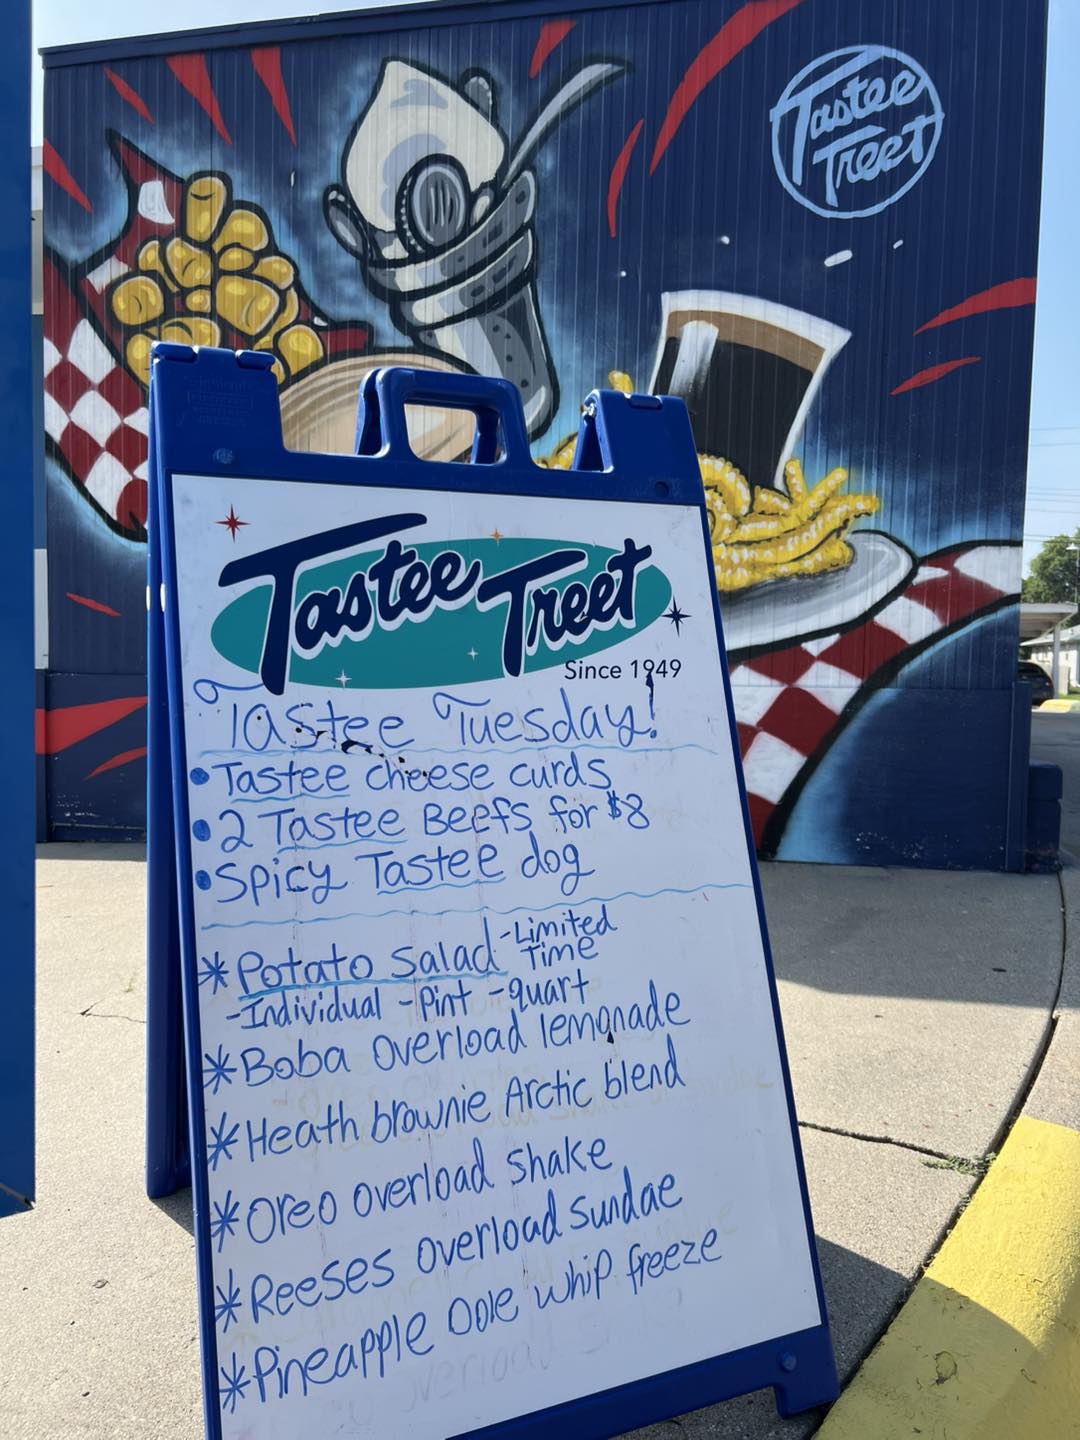 Tastee
Treet
Tastee Treet
Since 1949
Tastee Tuesday!
• Tastee cheese curds
• 2 Tastee Beefs for $8
• Spicy Tastee dog
* Potato Salad - Limited Time
- Individual - Pint - quart
* Boba overload lemonade
* Heath brownie Arctic blend
* Oreo overload shake
* Reeses overload sundae
* Pineapple Dole whip freeze